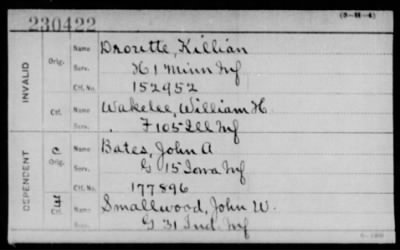 (3-M-4)
230422
INVALID
Orig.
Name Drorette, Killian
Serv. H 1 Minn Inf
Ctf. No. 152952
Ctf.
Name Wakelee, William H.
Serv. F 105 Ill Inf
DEPENDENT
C
Orig.
Name Bates, John A
Serv. G 15 Iowa Inf
Ctf. No. 177896
Ctf.
Name Smallwood, John W.
Serv. G 31 Ind Inf